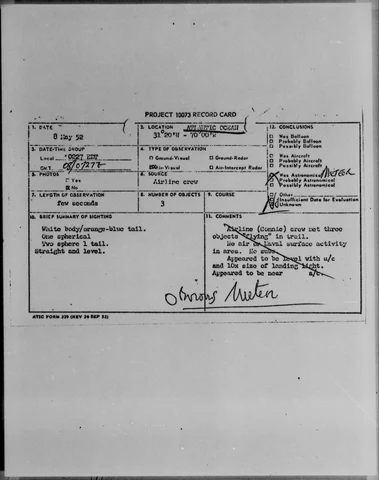 PROJECT 10073 RECORD CARD
1. DATE
8 May 52
2. LOCATION ATLANTIC OCEAN
31°20'N - 70°00'W
12. CONCLUSIONS
□ Was Balloon
□ Probably Balloon
□ Possibly Balloon
□ Was Aircraft
□ Probably Aircraft
□ Possibly Aircraft
Was Astronomical Meteor
□ Probably Astronomical
□ Possibly Astronomical
□ Other
Insufficient Data for Evaluation
Unknown
3. DATE-TIME GROUP
Local EST
GMT 08/0727Z
4. TYPE OF OBSERVATION
□ Ground-Visual □ Ground-Radar
Air-Visual □ Air-Intercept Radar
5. PHOTOS
□ Yes
No
6. SOURCE
Airline crew
7. LENGTH OF OBSERVATION
few seconds
8. NUMBER OF OBJECTS
3
9. COURSE
10. BRIEF SUMMARY OF SIGHTING
White body/orange-blue tail.
One spherical
Two sphere 1 tail.
Straight and level.
11. COMMENTS
Airline (Connie) crew met three
objects "flying" in trail.
No air or Naval surface activity
in area. No
Appeared to be level with a/c
and 10x size of landing light.
Appeared to be near a/c.
Obvious Meteor
ATIC FORM 329 (REV 26 SEP 52)